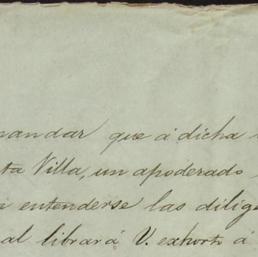 mandar que á dicha
ta Villa, un apoderado
entenderse las dilig
al librará V. exhorto á